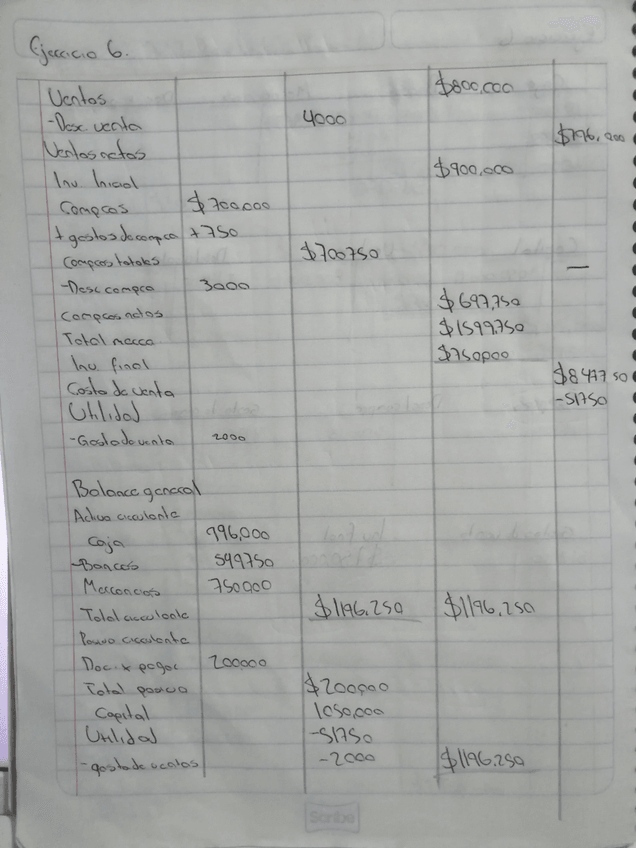 Ejercicio 6.
Ventas $800,000
-Desc. venta 4000
Ventas netas $796,000
Inv. Inicial $900,000
Compras $700,000
+ gastos de compra +750
Compras totales $700750 —
-Desc compra 3000
Compras netas $697,750
Total merca $1599,750
Inv. final $750,000
Costo de venta $847750
Utilidad -51750
-Gasto de venta 2000
Balance general
Activo circulante
Caja 996,000
-Bancos 549750
Mercancias 750000
Total circulante $1196,250 $1196,250
Pasivo circulante
Doc. x pagar 200000
Total pasivo $200,000
Capital 1050,000
Utilidad -51750
-gasto de ventas -2000 $1196.250
Scribe